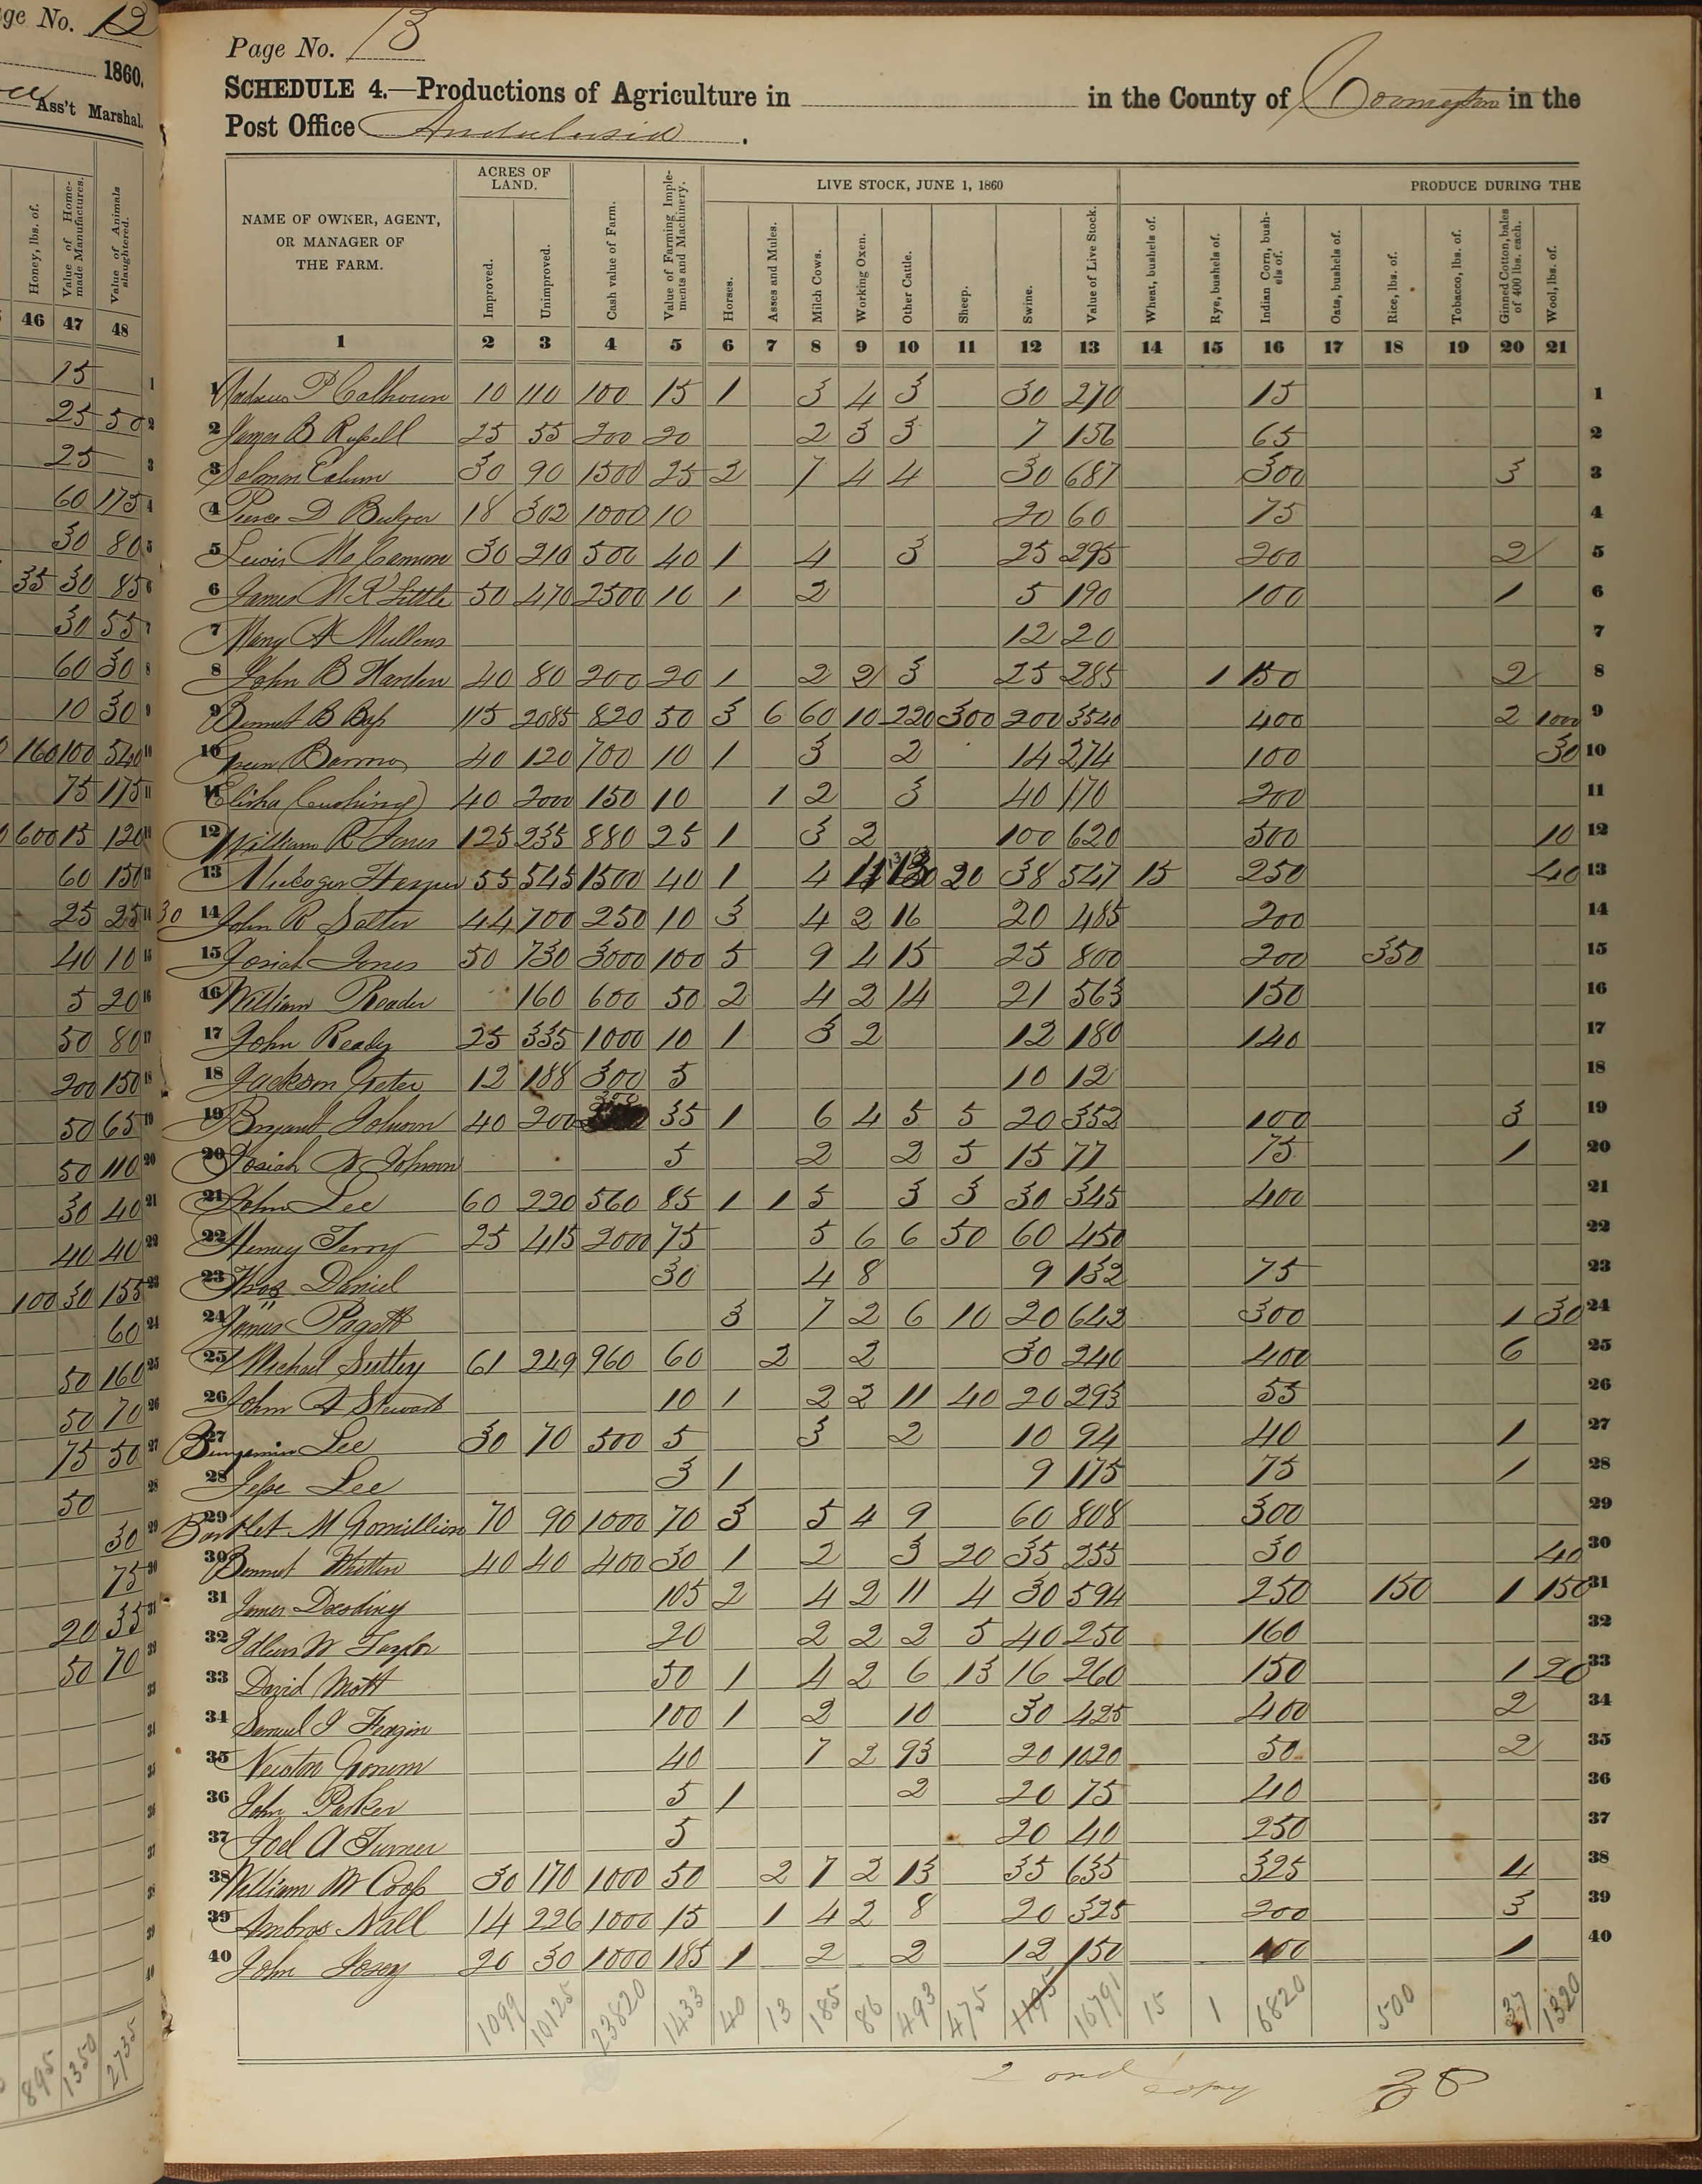 ge No. 12
1860.
Ass't Marshal.
Honey, lbs. of.
Value of Home-made Manufactures.
Value of Animals slaughtered.
46 47 48
15 1
25 50 2
25 3
60 175 4
30 80 5
35 30 85 6
30 55 7
60 30 8
10 30 9
160 100 540 10
75 175 11
600 15 120
60 150 13
25 25
40 10 15
5 20 16
50 80 17
200 150 18
50 65 19
50 110 20
30 40 21
40 40 22
100 30 155 23
60 24
50 160 25
50 70 26
75 50 27
50 28
30 29
75 30
20 35 31
50 70 32
33
34
35
36
37
38
39
40
895 1350 2735
Page No. 13
SCHEDULE 4.—Productions of Agriculture in in the County of Covington in the
Post Office Andalusia.
NAME OF OWNER, AGENT, OR MANAGER OF THE FARM.
ACRES OF LAND.
Improved.
Unimproved.
Cash value of Farm.
Value of Farming Implements and Machinery.
LIVE STOCK, JUNE 1, 1860
Horses.
Asses and Mules.
Milch Cows.
Working Oxen.
Other Cattle.
Sheep.
Swine.
Value of Live Stock.
PRODUCE DURING THE
Wheat, bushels of.
Rye, bushels of.
Indian Corn, bushels of.
Oats, bushels of.
Rice, lbs. of.
Tobacco, lbs. of.
Ginned Cotton, bales of 400 lbs. each.
Wool, lbs. of.
1 2 3 4 5 6 7 8 9 10 11 12 13 14 15 16 17 18 19 20 21
1 P Calhoun 10 110 100 15 1 3 4 3 30 270 15 1
2 James B Russell 25 55 200 20 2 3 3 7 156 65 2
3 Solomon 30 90 1500 25 2 7 4 4 30 687 300 3 3
4 Pierce D Bulger 18 302 1000 10 20 60 75 4
5 Lewis Mc 30 210 500 40 1 4 3 25 295 200 2 5
6 James M K Little 50 470 2500 10 1 2 5 190 100 1 6
7 Mary A Mullens 12 20 7
8 John B Harden 40 80 200 20 1 2 2 3 25 285 1 150 2 8
9 Bennet B Bass 115 2085 820 50 3 6 60 10 220 300 200 3540 400 2 1000 9
10 Green 40 120 700 10 1 3 2 14 274 100 30 10
11 Elisha Cushing 40 2000 150 10 1 2 3 40 170 200 11
12 William R Jones 125 235 880 25 1 3 2 100 620 500 10 12
13 55 545 1500 40 1 4 20 38 547 15 250 40 13
30 14 John R Salter 44 700 250 10 3 4 2 16 20 485 200 14
15 Josiah Jones 50 730 3000 100 5 9 4 15 25 800 200 350 15
16 William Reader 160 600 50 2 4 2 14 21 563 150 16
17 John Ready 25 335 1000 10 1 3 2 12 180 140 17
18 Jackson 12 188 300 5 10 12 18
19 Bryant Johnson 40 200 35 1 6 4 5 5 20 352 100 3 19
20 Josiah Johnson 5 2 2 5 15 77 75 1 20
21 John Lee 60 220 560 85 1 1 5 3 3 30 345 400 21
22 Henry Terry 25 415 2000 75 5 6 6 50 60 450 22
23 Thos Daniel 30 4 8 9 132 75 23
24 James Pagett 3 7 2 6 10 20 642 300 1 30 24
25 Michael 61 249 960 60 2 2 30 240 400 6 25
26 John A Stewart 10 1 2 2 11 40 20 293 55 26
27 Benjamin Lee 30 70 500 5 3 2 10 94 40 1 27
28 Jesse Lee 3 1 9 175 75 1 28
29 Bartlet M Gomillion 70 90 1000 70 3 5 4 9 60 808 300 29
30 Bennet Whitten 40 40 400 30 1 2 3 20 35 255 30 40 30
31 James 105 2 4 2 11 4 30 594 250 150 1 150 31
32 W Taylor 20 2 2 2 5 40 250 160 32
33 David Mott 50 1 4 2 6 13 16 260 150 1 20 33
34 Samuel J Feagin 100 1 2 10 30 425 400 2 34
35 Newton 40 7 2 93 20 1020 50 2 35
36 John Parker 5 1 2 20 75 40 36
37 Joel A Turner 5 20 40 250 37
38 William M 30 170 1000 50 2 7 2 13 35 635 325 4 38
39 Ambros Nall 14 226 1000 15 1 4 2 8 20 325 200 3 39
40 John Josey 20 30 1000 185 1 2 2 12 150 100 1 40
1099 10125 23820 1433 40 13 185 86 493 475 1195 16791 15 1 6820 500 37 1320
2 ond copy 38